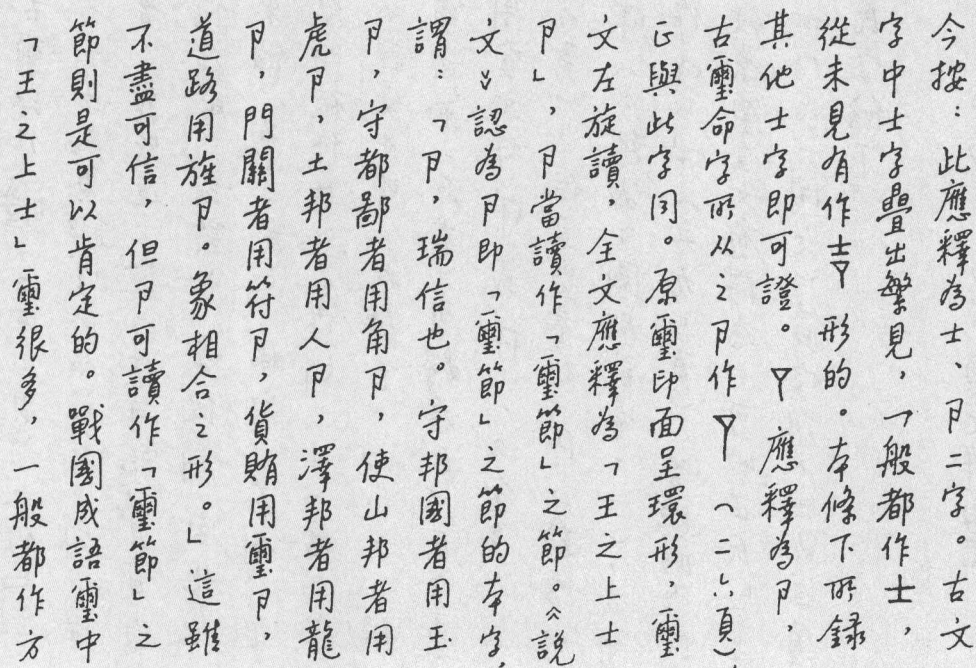 今按：此應釋為士、卩二字。古文
字中士字疊出繁見，一般都作士，
從未見有作士 形的。本條下所錄
其他士字即可證。 應釋為卩，
古璽命字所从之卩作 （二六頁），
正與此字同。原璽印面呈環形，璽
文左旋讀，全文應釋為「王之上士
卩」，卩當讀作「璽節」之節。《說
文》認為卩即「璽節」之節的本字，
謂：「卩，瑞信也。守邦國者用玉
卩，守都鄙者用角卩，使山邦者用
虎卩，土邦者用人卩，澤邦者用龍
卩，門關者用符卩，貨賄用璽卩，
道路用旌卩。象相合之形。」這雖
不盡可信，但卩可讀作「璽節」之
節則是可以肯定的。戰國成語璽中
「王之上士」璽很多，一般都作方